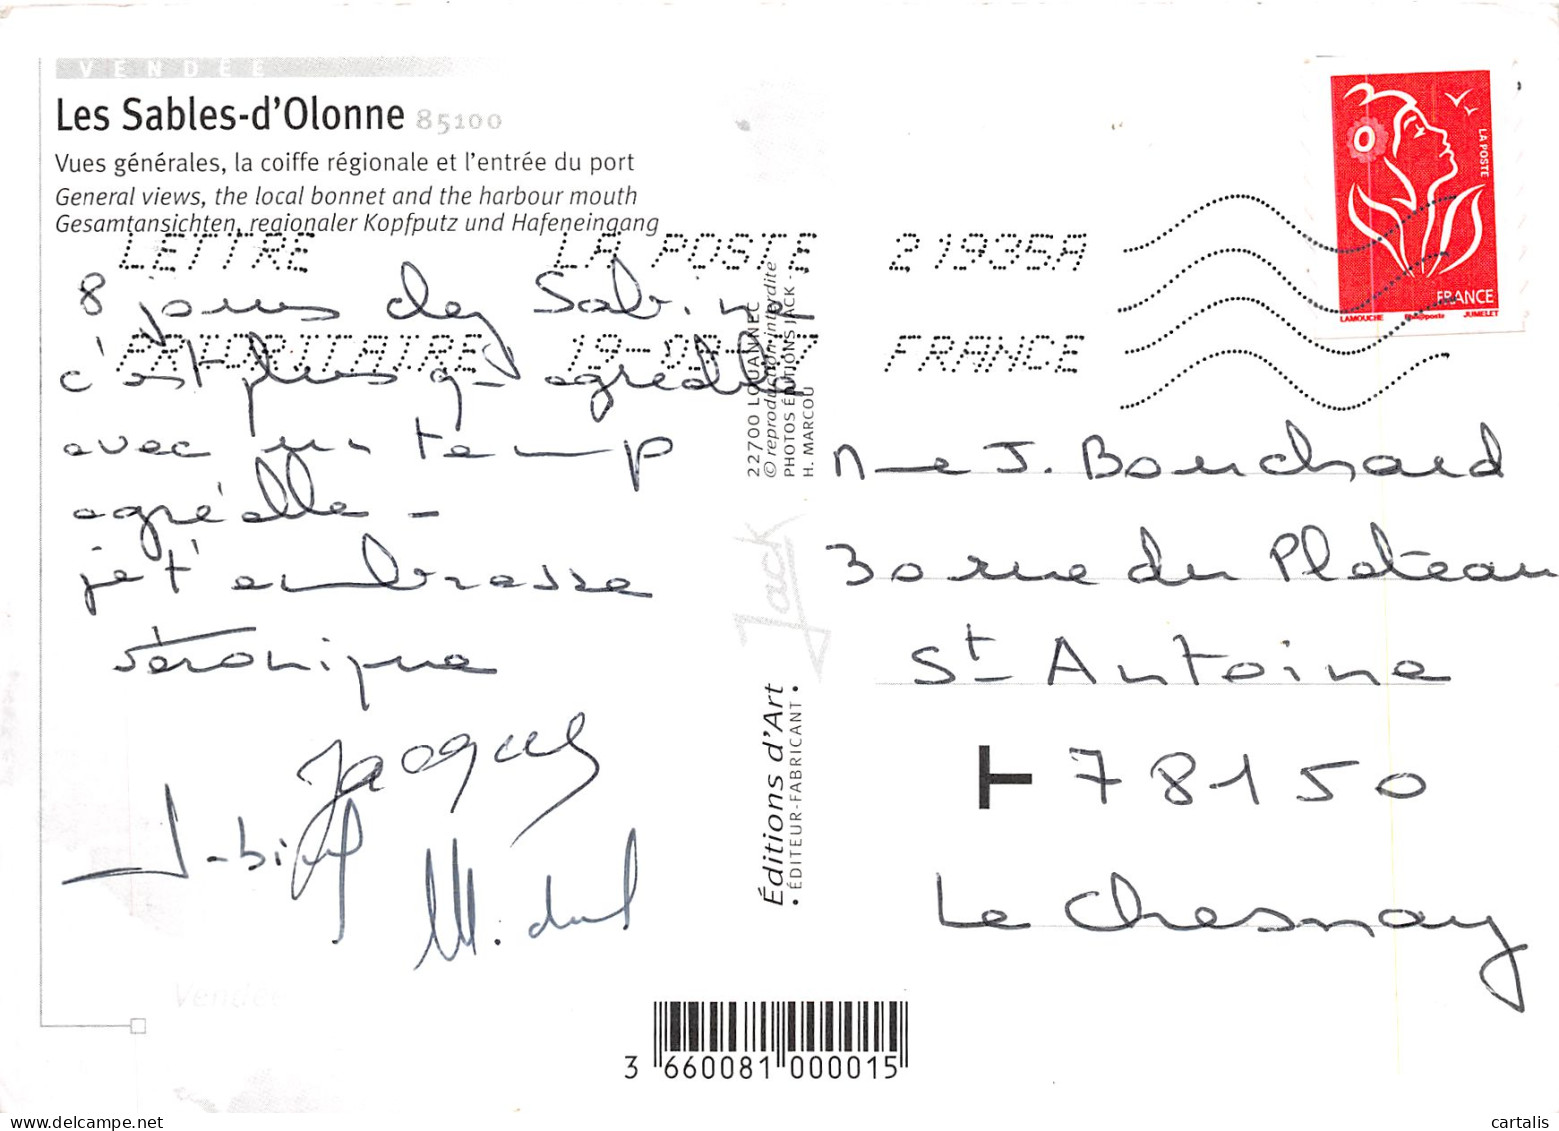 VENDÉE
Les Sables-d'Olonne 85100
Vues générales, la coiffe régionale et l'entrée du port
General views, the local bonnet and the harbour mouth
Gesamtansichten, regionaler Kopfputz und Hafeneingang
LETTRE LA POSTE 21935A
PRIORITAIRE 19-09-07 FRANCE
8 jours chez Sabine
c'est plus qu'agréable
avec un temp
agréable -
je t'embrasse
Véronique
Jacques
Michel
22700 LOUANNEC
© reproduction interdite
PHOTOS ÉDITIONS JACK -
H. MARCOU
Jack
Éditions d'Art
• ÉDITEUR-FABRICANT •
LA POSTE
FRANCE
LAMOUCHE JUMELET
Mme J. Bouchard
30 rue du Plateau
St Antoine
78150
Le Chesnay
Vendée
3 660081 000015
cartalis